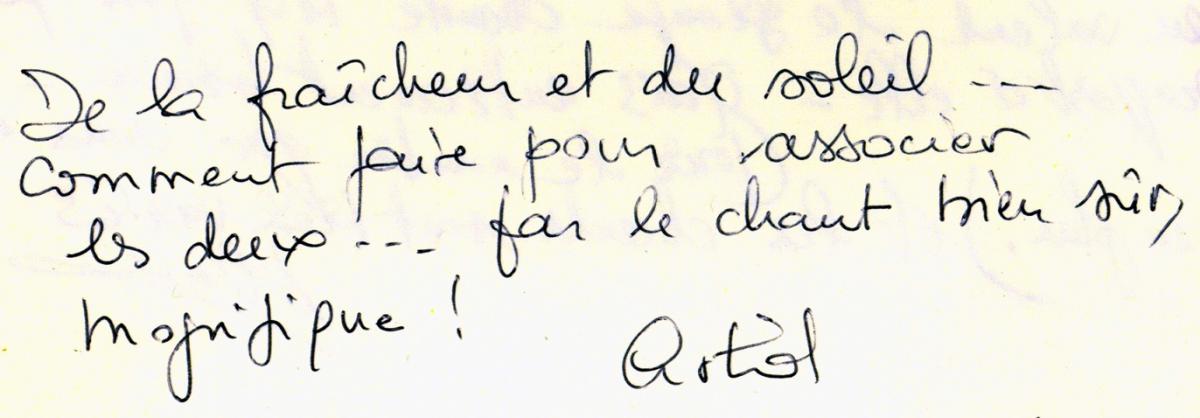 De la fraîcheur et du soleil ---
Comment faire pour associer
les deux --- par le chant bien sûr,
magnifique !